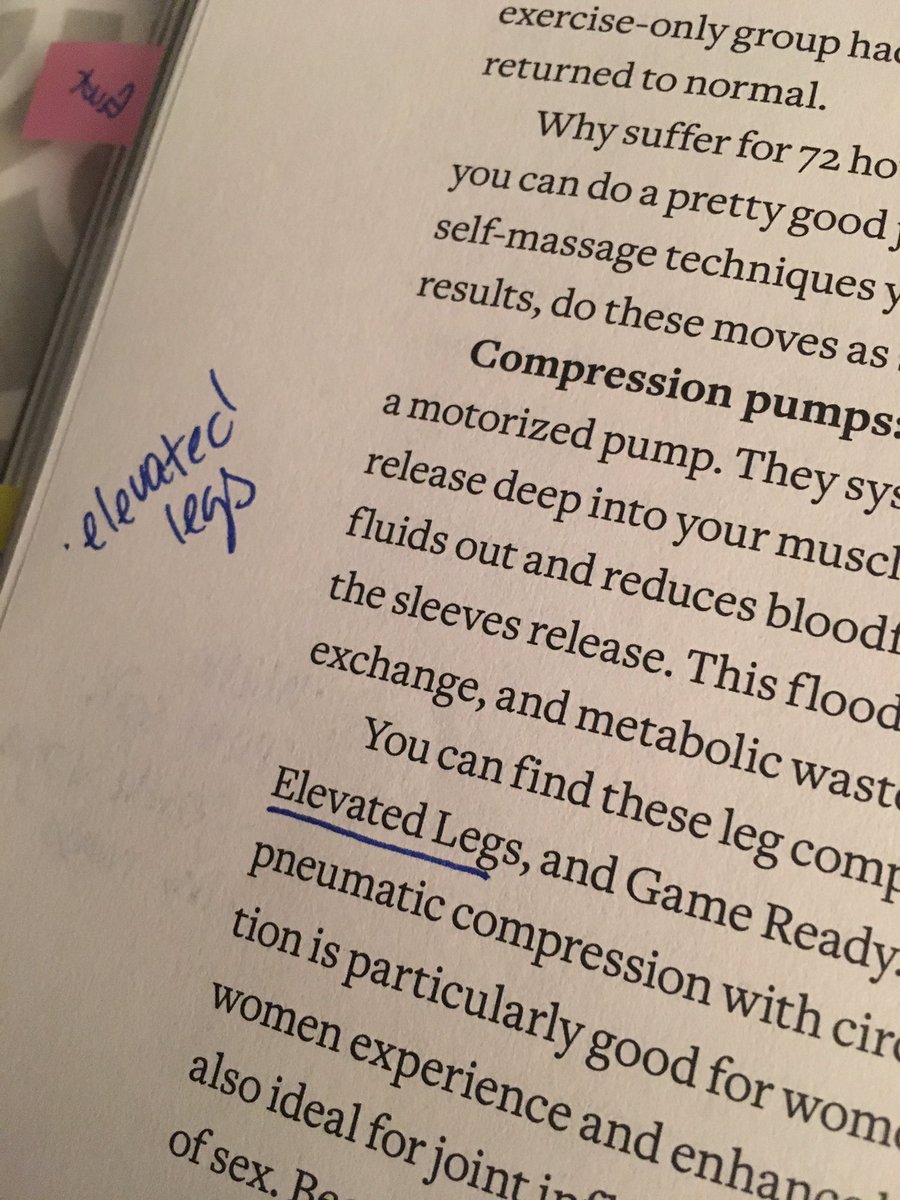 exercise-only group had
returned to normal.
Why suffer for 72 ho
you can do a pretty good j
self-massage techniques y
results, do these moves as
Compression pumps:
a motorized pump. They sys
release deep into your muscl
fluids out and reduces bloodf
the sleeves release. This flood
exchange, and metabolic waste
You can find these leg comp
Elevated Legs, and Game Ready.
pneumatic compression with circ
tion is particularly good for wome
women experience and enhance
also ideal for joint infl
of sex. Be
elevated
legs